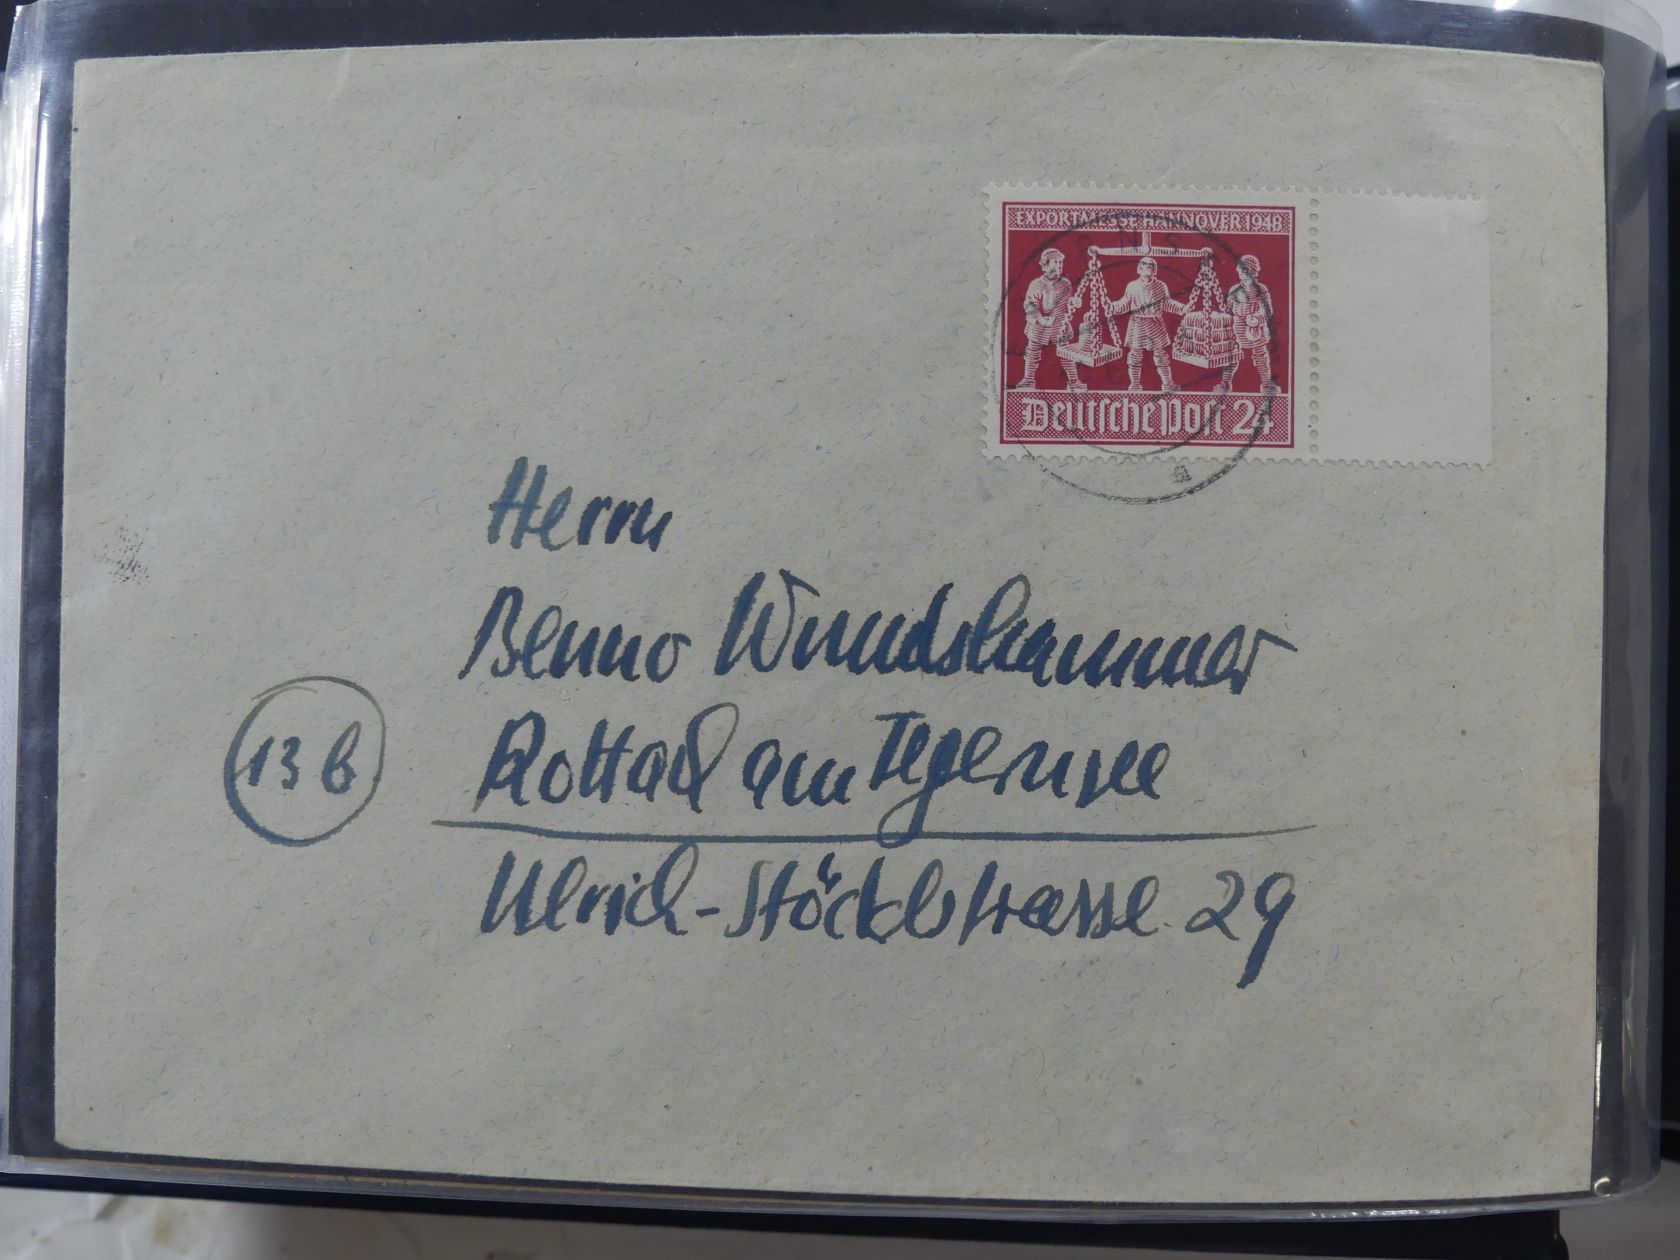 EXPORTMESSE HANNOVER 1948
Deutsche Post 24
a
Herrn
Benno Wundshammer
Rottach am Tegernsee
13b
Ulrich-Stöcklstrasse 29